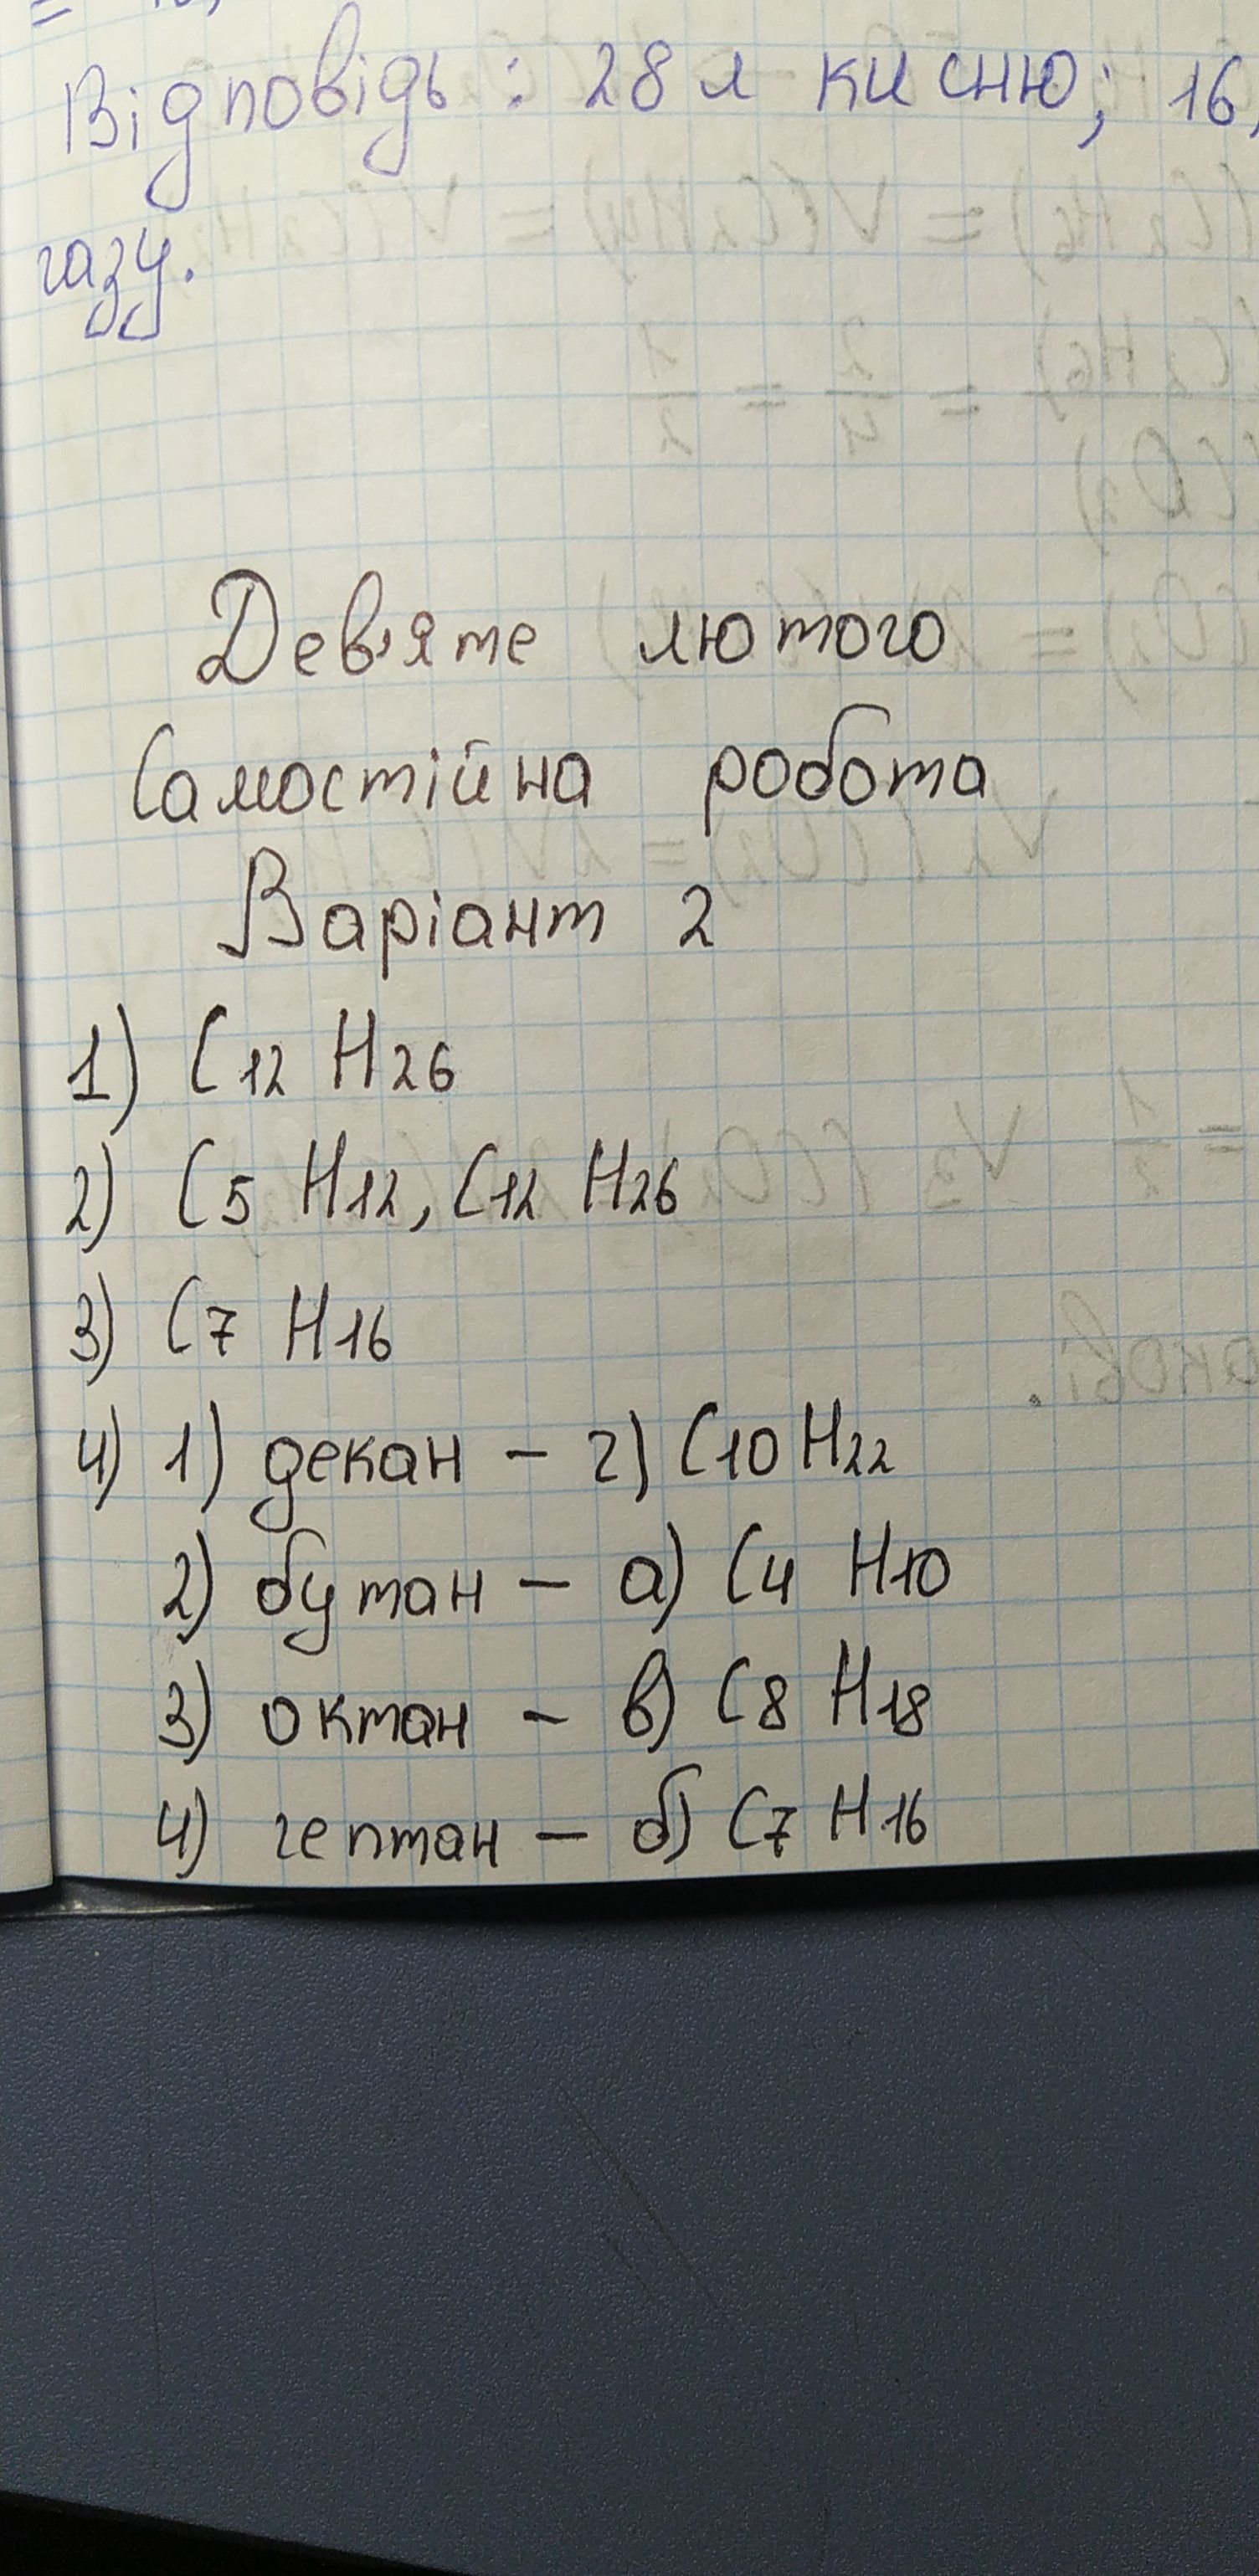 Відповідь: 28 л кисню; 16,
газу.
Дев'яте лютого
Самостійна робота
Варіант 2
1) C12 H26
2) C5 H12, C12 H26
3) C7 H16
4) 1) декан – г) C10 H22
2) бутан – а) C4 H10
3) октан – в) C8 H18
4) гептан – б) C7 H16